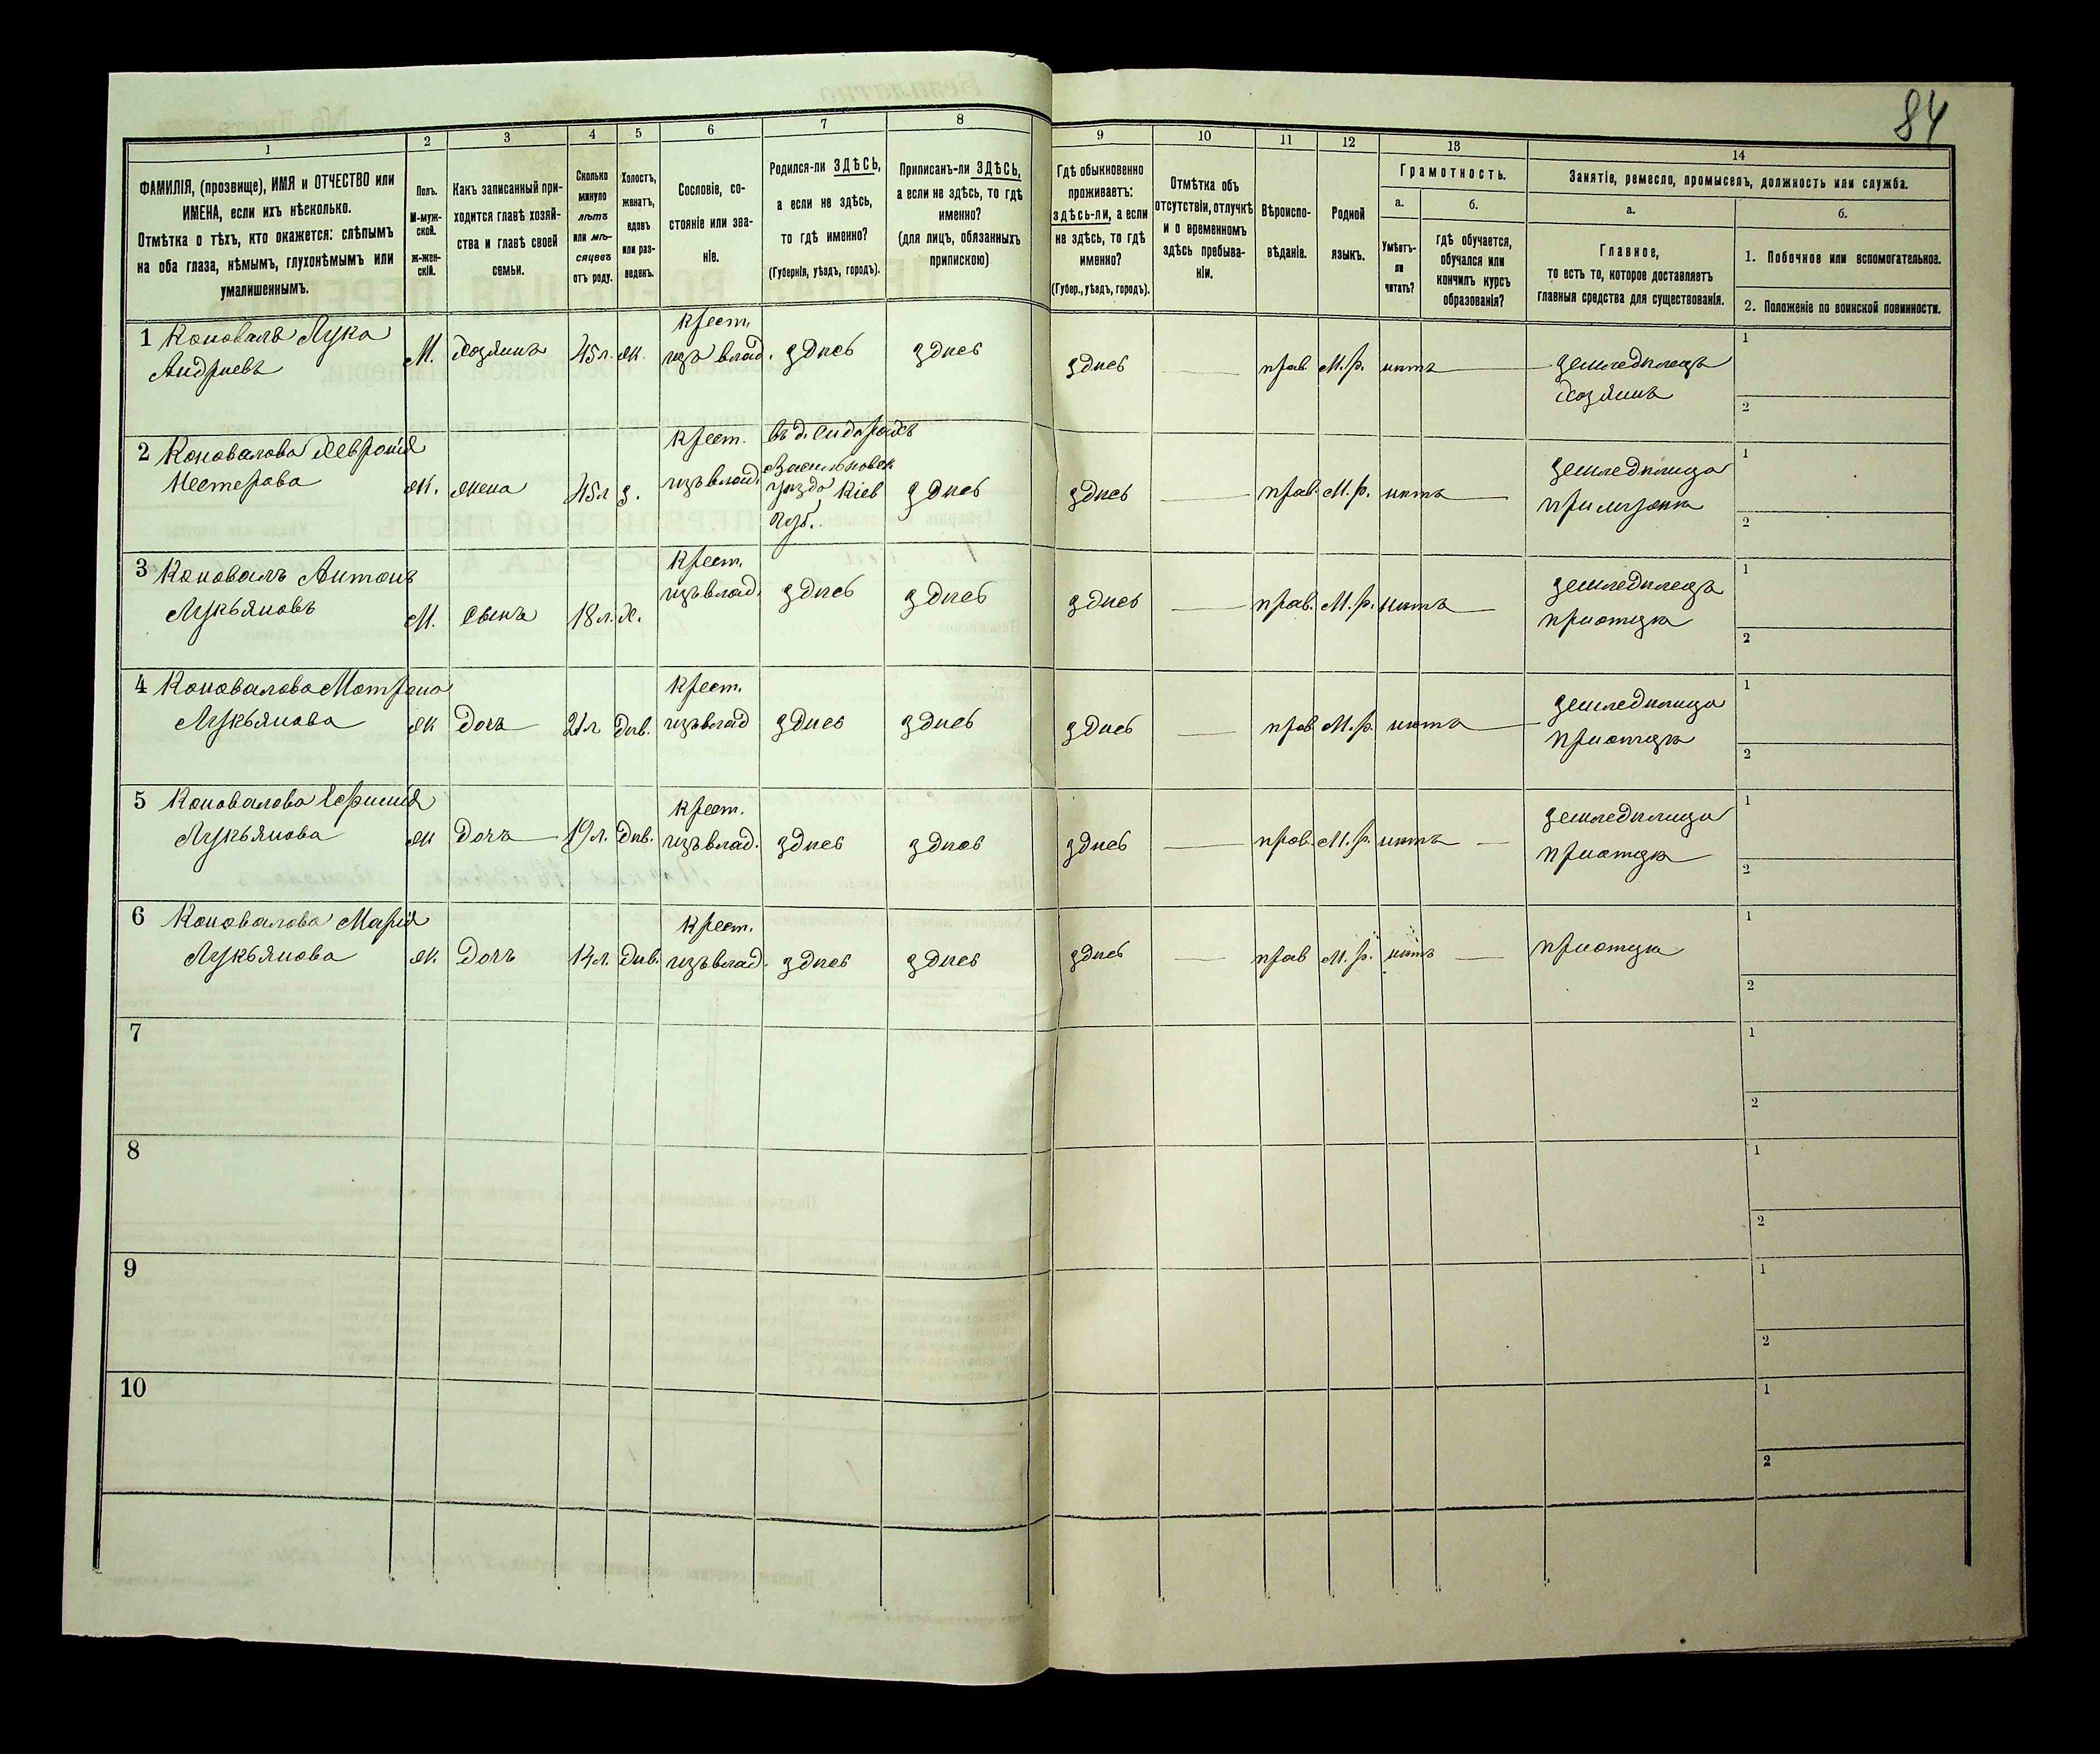 84
1
2
3
4
5
6
7
8
9
10
11
12
13
14
ФАМИЛІЯ, (прозвище), ИМЯ и ОТЧЕСТВО или
ИМЕНА, если ихъ нѣсколько.
Отмѣтка о тѣхъ, кто окажется: слѣпымъ
на оба глаза, нѣмымъ, глухонѣмымъ или
умалишеннымъ.
Полъ.
М-муж-
ской.
Ж-жен-
скій.
Какъ записанный при-
ходится главѣ хозяй-
ства и главѣ своей
семьи.
Сколько
минуло
лѣтъ
или мѣ-
сяцевъ
отъ роду.
Холостъ,
женатъ,
вдовъ
или раз-
веденъ.
Сословіе, со-
стояніе или зва-
ніе.
Родился-ли ЗДѢСЬ,
а если не здѣсь,
то гдѣ именно?
(Губернія, уѣздъ, городъ).
Приписанъ-ли ЗДѢСЬ,
а если не здѣсь, то гдѣ
именно?
(для лицъ, обязанныхъ
припискою)
Гдѣ обыкновенно
проживаетъ:
здѣсь-ли, а если
не здѣсь, то гдѣ
именно?
(Губер., уѣздъ, городъ).
Отмѣтка объ
отсутствіи, отлучкѣ
и о временномъ
здѣсь пребыва-
ніи.
Вѣроиспо-
вѣданіе.
Родной
языкъ.
Грамотность.
а.
Умѣетъ-
ли
читать?
б.
гдѣ обучается,
обучался или
кончилъ курсъ
образованія?
Занятіе, ремесло, промыселъ, должность или служба.
а.
Главное,
то есть то, которое доставляетъ
главныя средства для существованія.
б.
1. Побочное или вспомогательное.
2. Положеніе по воинской повинности.
1 Коновалъ Лука
Андріевъ
М. Хозяинъ 45 л. ж. крест. изъ влад. здѣсь здѣсь здѣсь — прав М.р. нѣтъ — земледѣлецъ
хозяинъ
1
2
2 Коновалова Хевронія
Нестерова
ж. жена 45 л з. крест. изъ влад.
въ д. Сидорахъ
Васильковск.
уѣзда Кіев
губ.
здѣсь здѣсь — прав. М.р. нѣтъ — земледѣлица
при мужѣ
1
2
3 Коновалъ Антонъ
Лукьяновъ
М. сынъ 18 л. х. крест. изъ влад. здѣсь здѣсь здѣсь — прав. М.р. нѣтъ — земледѣлецъ
при отцѣ
1
2
4 Коновалова Мотрона
Лукьянова
ж Дочь 21 л дѣв. крест. изъ влад здѣсь здѣсь здѣсь — прав М.р. нѣтъ — земледѣлица
при отцѣ
1
2
5 Коновалова Ефимія
Лукьянова
ж Дочь 19 л. дѣв. крест. изъ влад. здѣсь здѣсь здѣсь — прав. М.р. нѣтъ — земледѣлица
при отцѣ
1
2
6 Коновалова Марія
Лукьянова
ж. Дочь 14 л. дѣв. крест. изъ влад. здѣсь здѣсь здѣсь — прав М.р. нѣтъ — при отцѣ
1
2
7
1
2
8
1
2
9
1
2
10
1
2